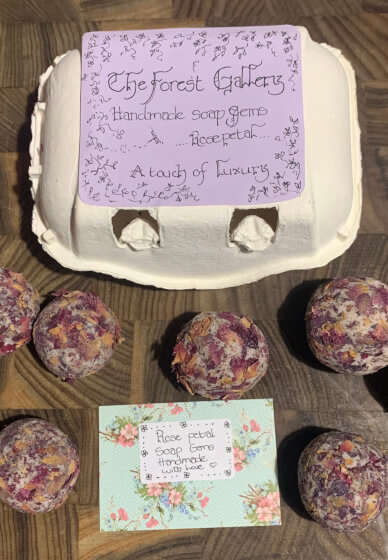 The Forest Gallery
Handmade soap Gems
... Rosepetal ...
A touch of Luxury
Rose petal
Soap Gems
Handmade
with Love ♡